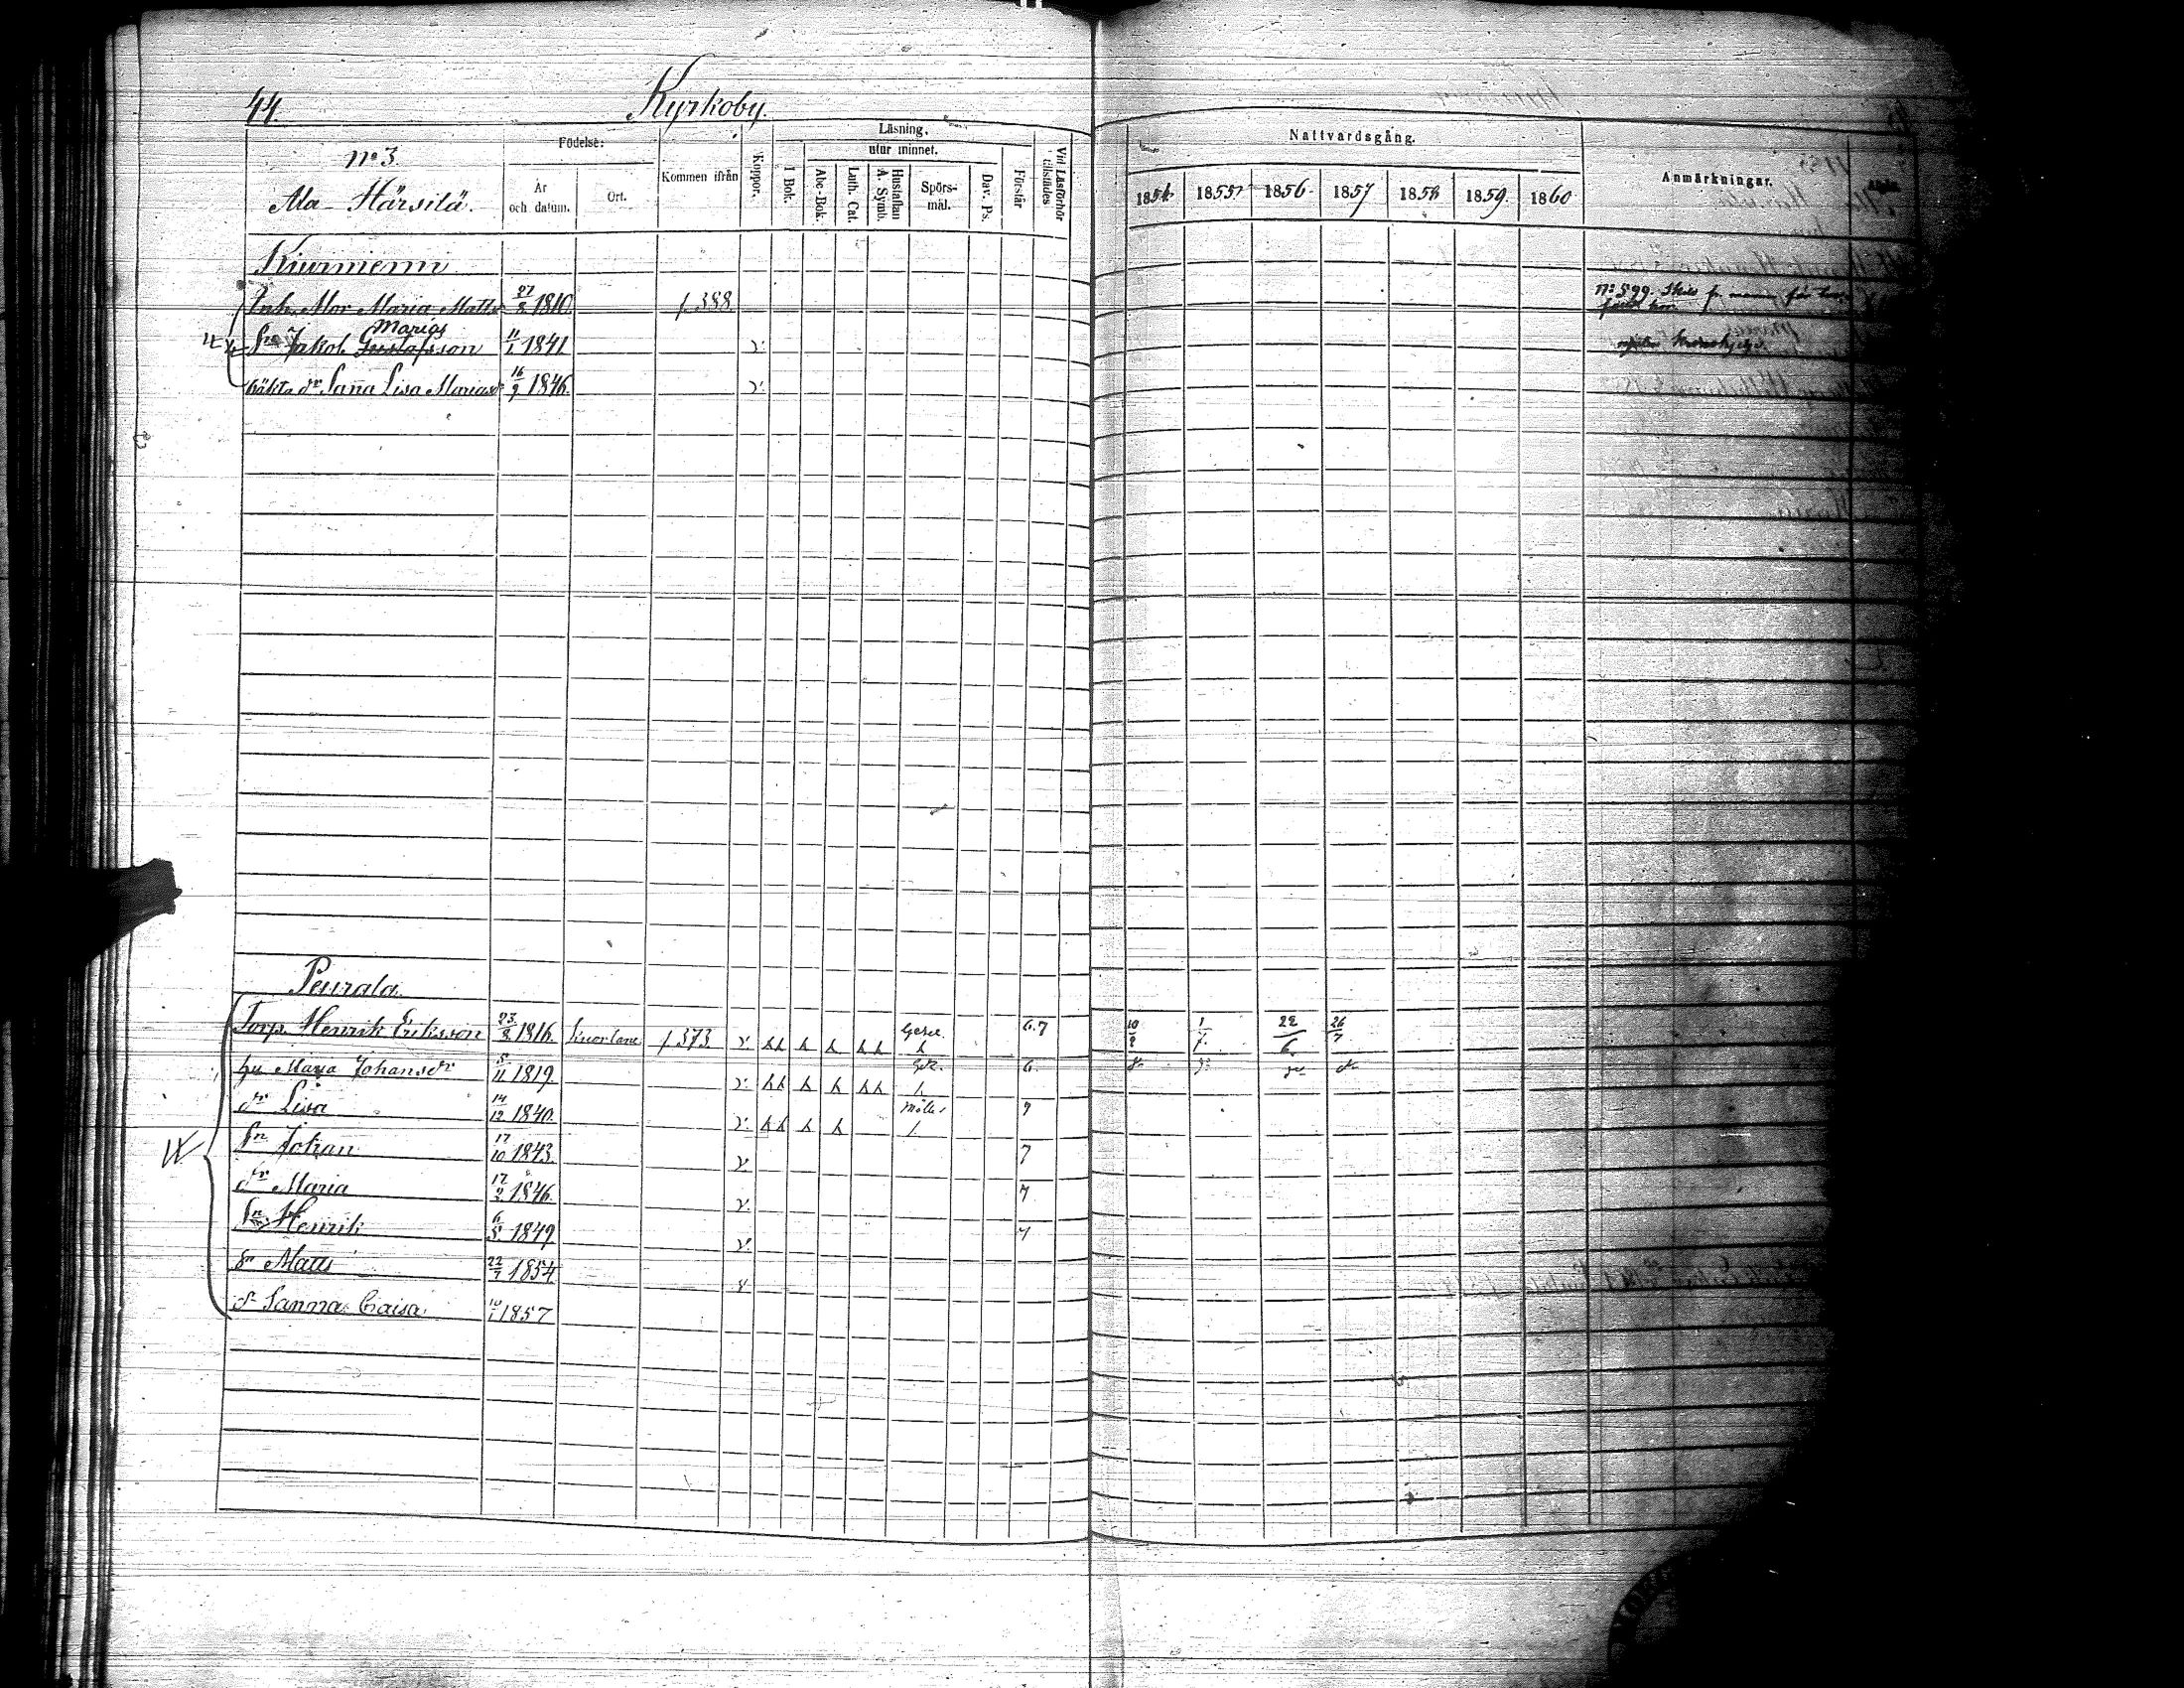 44
Kyrkoby.
No 3.
Ala-Härsilä.
Födelse:
År och datum.
Ort.
Kommen ifrån
Koppor.
Läsning.
I Bok.
utur minnet.
Abc-Bok.
Luth. Cat.
Hustaflan A. Symb.
Spörsmål.
Dav. Ps.
Förstår
Vid Läsförhör tillstädes
Nattvardsgång.
1854. 1855. 1856. 1857 1858 1859. 1860
Anmärkningar.
Kiurniemi
Inh. Mor Maria Matts 27/2 1810. f. 388. No 599.
Marias
Sn Jakob Gustafsson 11/1 1841 v.
oäkta dr Sanna Lisa Mariasd 16/9 1846. v.
Peurala
Torp. Henrik Eriksson 23/2 1816. f 373 v. 6.7 10/9 1/7 22/6 26/7
hu Maria Johansdr 5/11 1819. v. 6.
dr Lisa 14/12 1840. v. 7
Sn Johan 17/10 1843. v. 7
dr Maria 17/2 1846. v. 7
Sn Henrik 6/5 1849 v. 7
Sn Matts 22/7 1854 v
dr Sanna Caisa 10/1 1857